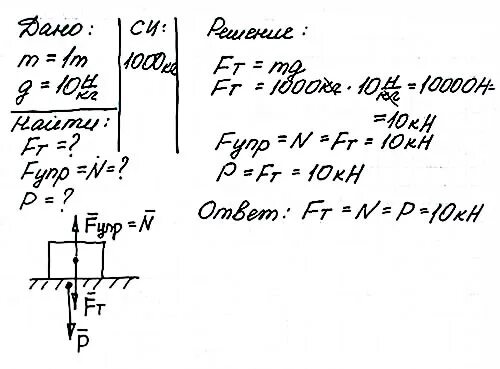 Дано:
m = 1т
g = 10 Н/кг
Найти:
Fт = ?
Fупр = N = ?
P = ?
СИ:
1000кг
Решение:
Fт = mg
Fт = 1000кг · 10 Н/кг = 10000Н=
=10кН
Fупр = N = Fт = 10кН
P = Fт = 10кН
Ответ: Fт = N = P = 10кН
F̅упр = N̅
F̅т
P̅